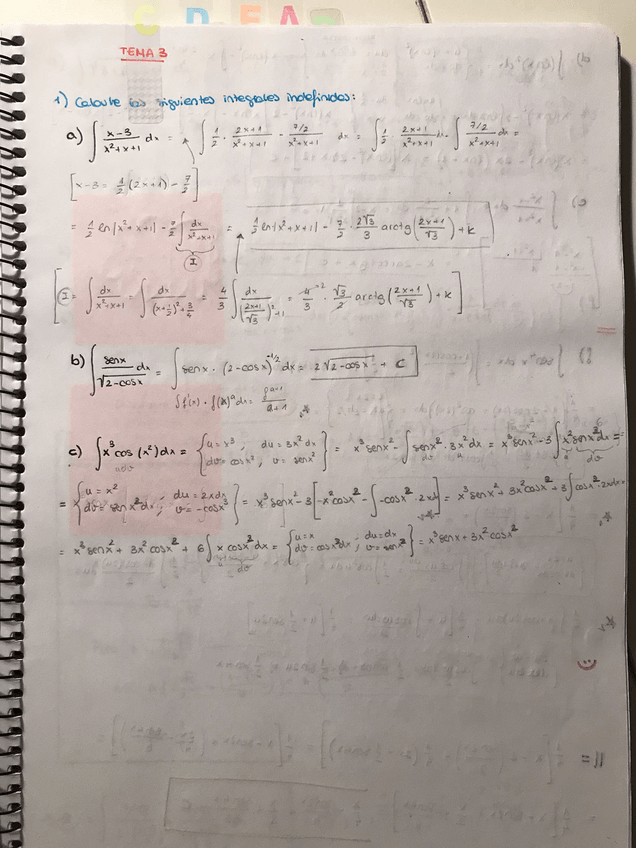 TEMA 3
1) Calcule las siguientes integrales indefinidas:
a) ∫ (x-3)/(x²+x+1) dx = ∫ 1/2 · (2x+1)/(x²+x+1) - (7/2)/(x²+x+1) dx = ∫ 1/2 · (2x+1)/(x²+x+1) dx - ∫ (7/2)/(x²+x+1) dx =
[x-3 = 1/2 (2x+1) - 7/2]
= 1/2 ln|x²+x+1| - 7/2 ∫ dx/(x²+x+1) = 1/2 ln|x²+x+1| - 7/2 · 2√3/3 arctg((2x+1)/√3) + K
I
[I = ∫ dx/(x²+x+1) = ∫ dx/((x+1/2)²+3/4) = 4/3 ∫ dx/(((2x+1)/√3)²+1) = 4/3 · √3/2 arctg((2x+1)/√3) + K]
b) ∫ senx/√(2-cosx) dx = ∫ senx · (2-cosx)^(-1/2) dx = 2√(2-cosx) + C
∫ f'(x) · f(x)^a dx = f^(a+1)/(a+1)
c) ∫ x³ cos(x²) dx = {u = x³, du = 3x² dx
dv = cosx², v = senx²} = x³ senx² - ∫ senx² · 3x² dx = x³ senx² - 3 ∫ x² senx² dx =
= {u = x² ; du = 2x dx
dv = senx² dx ; v = -cosx²} = x³ senx² - 3[-x² cosx² - ∫ -cosx² · 2x dx] = x³ senx² + 3x² cosx² + 3 ∫ cosx² · 2x dx =
= x³ senx² + 3x² cosx² + 6 ∫ x cosx² dx = {u = x ; du = dx
dv = cosx² dx ; v = senx²} = x³ senx + 3x² cosx²